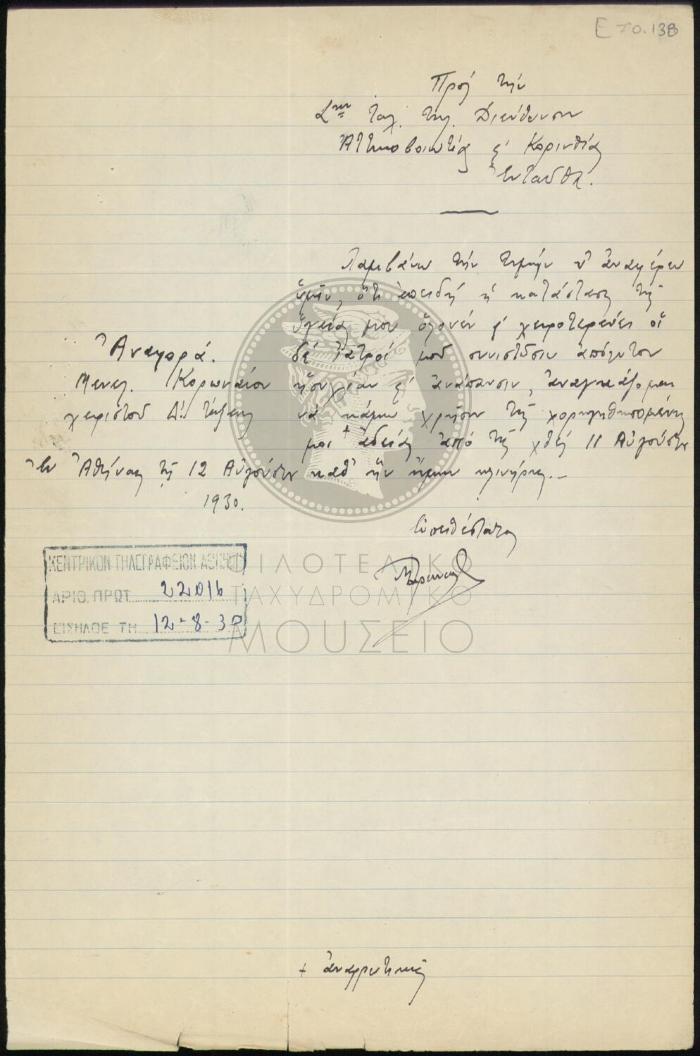 Ε 70.138
Πρός τήν
Δνσιν Ταχ. Τηλ. Διεύθυνσιν
Ἀττικοβοιωτίας & Κορινθίας
Ἐνταῦθα.
Λαμβάνω τήν τιμήν ν' ἀναφέρω
ὑμῖν, ὅτι ἐπειδή ἡ κατάστασις τῆς
ὑγείας μου ὁλονέν & χειροτερεύει οἱ
δέ ἰατροί μοῦ συνιστῶσιν ἀπόλυτον
ἡσυχίαν & ἀνάπαυσιν, ἀναγκάζομαι
νά κάμω χρῆσιν τῆς χορηγηθησομένης
μοι + ἀδείας ἀπό τῆς χθές 11 Αὐγούστου
καθ' ἥν ἤμην κλινήρης.—
Ἀναφορά.
Μενελ. Κορωναίου
χειριστοῦ Δης Τάξεως
Ἐν Ἀθήναις τῇ 12 Αὐγούστου
1930.
Εὐπειθέστατος
ΚΕΝΤΡΙΚΟΝ ΤΗΛΕΓΡΑΦΕΙΟΝ ΑΘΗΝΩΝ
ΑΡΙΘ. ΠΡΩΤ. 22016
ΕΙΣΗΛΘΕ ΤΗ 12-8-30
ΦΙΛΟΤΕΛΙΚΟ
ΤΑΧΥΔΡΟΜΙΚΟ
ΜΟΥΣΕΙΟ
+ ἀναρρωτικῆς